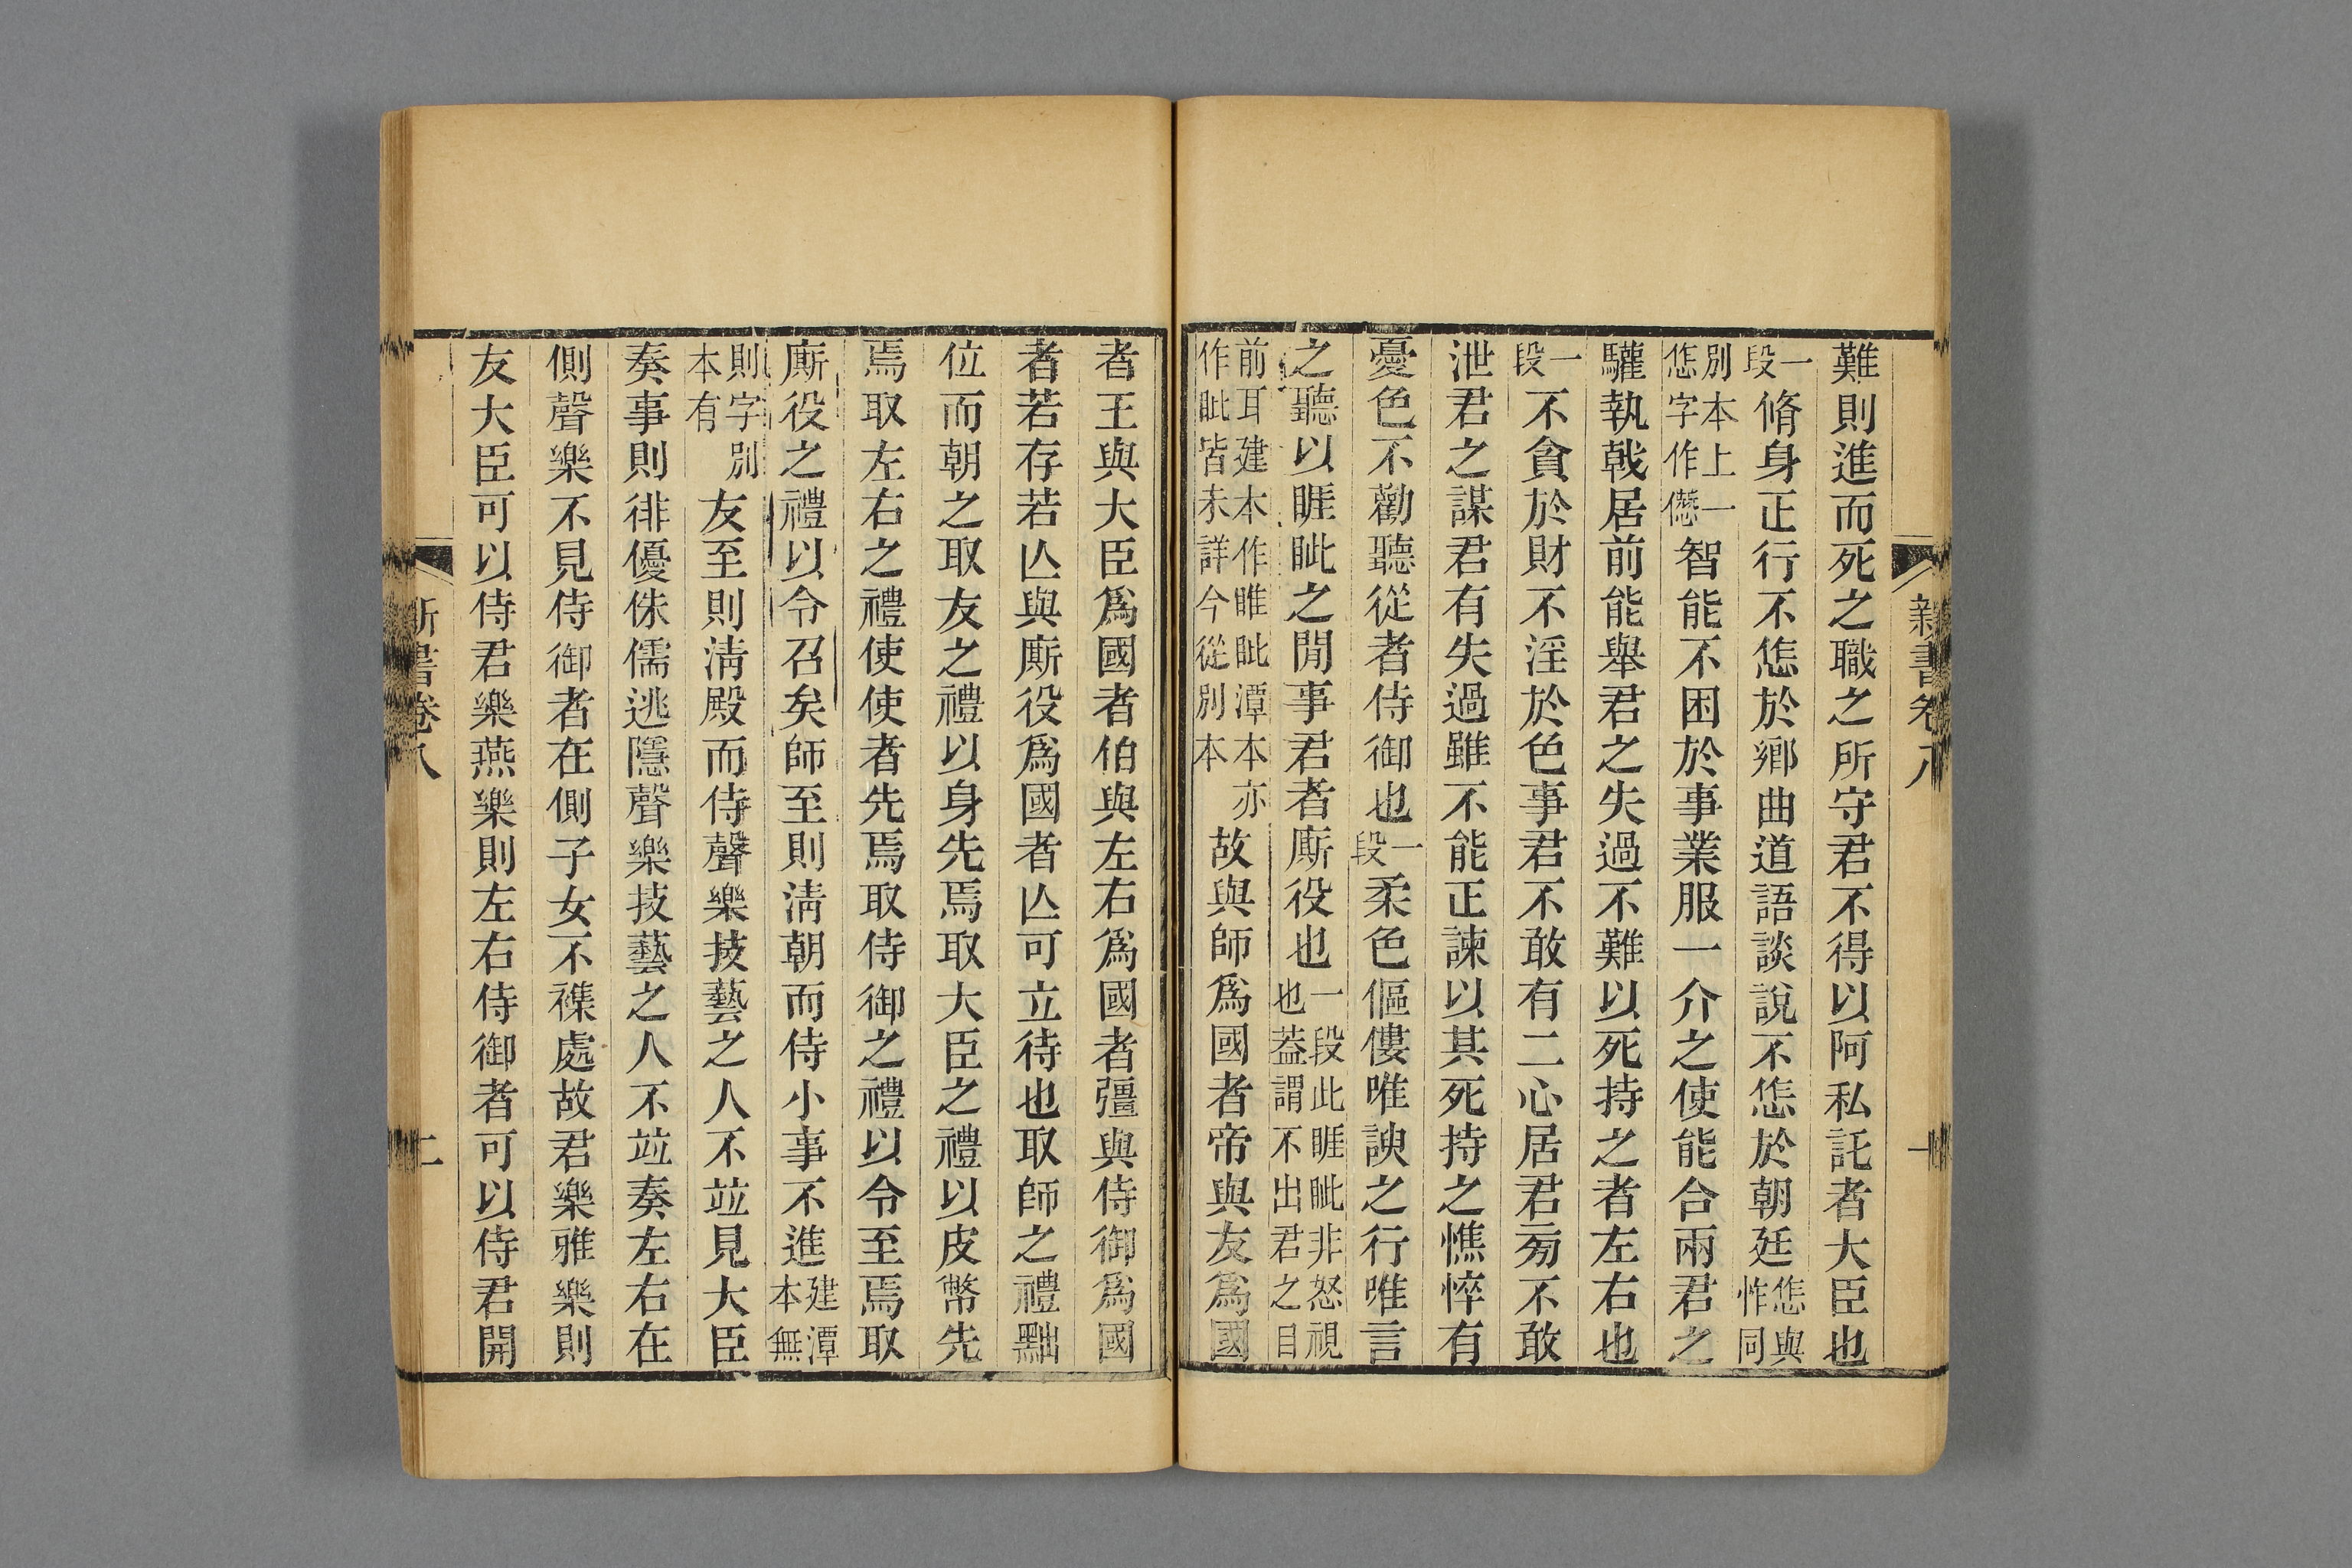 新書卷八
十
難則進而死之職之所守君不得以阿私託者大臣也
一段脩身正行不怍於鄉曲道語談說不怍於朝廷怍與怍同
別本上一怍字作僁智能不困於事業服一介之使能合兩君之
驩執戟居前能舉君之失過不難以死持之者左右也
一段不貪於財不淫於色事君不敢有二心居君旁不敢
泄君之謀君有失過雖不能正諫以其死持之憔悴有
憂色不勸聽從者侍御也一段柔色傴僂唯諛之行唯言
之聽以睚眦之閒事君者廝役也一段此睚眦非怒視也葢謂不出君之目
前耳建本作睢眦潭本亦作眦皆未詳今從別本故與師爲國者帝與友爲國
者王與大臣爲國者伯與左右爲國者彊與侍御爲國
者若存若亾與廝役爲國者亾可立待也取師之禮黜
位而朝之取友之禮以身先焉取大臣之禮以皮幣先
焉取左右之禮使使者先焉取侍御之禮以令至焉取
廝役之禮以令召矣師至則清朝而侍小事不進建潭本無
則字別本有友至則清殿而侍聲樂技藝之人不竝見大臣
奏事則徘優侏儒逃隱聲樂技藝之人不竝奏左右在
側聲樂不見侍御者在側子女不襍處故君樂雅樂則
友大臣可以侍君樂燕樂則左右侍御者可以侍君開
新書卷八